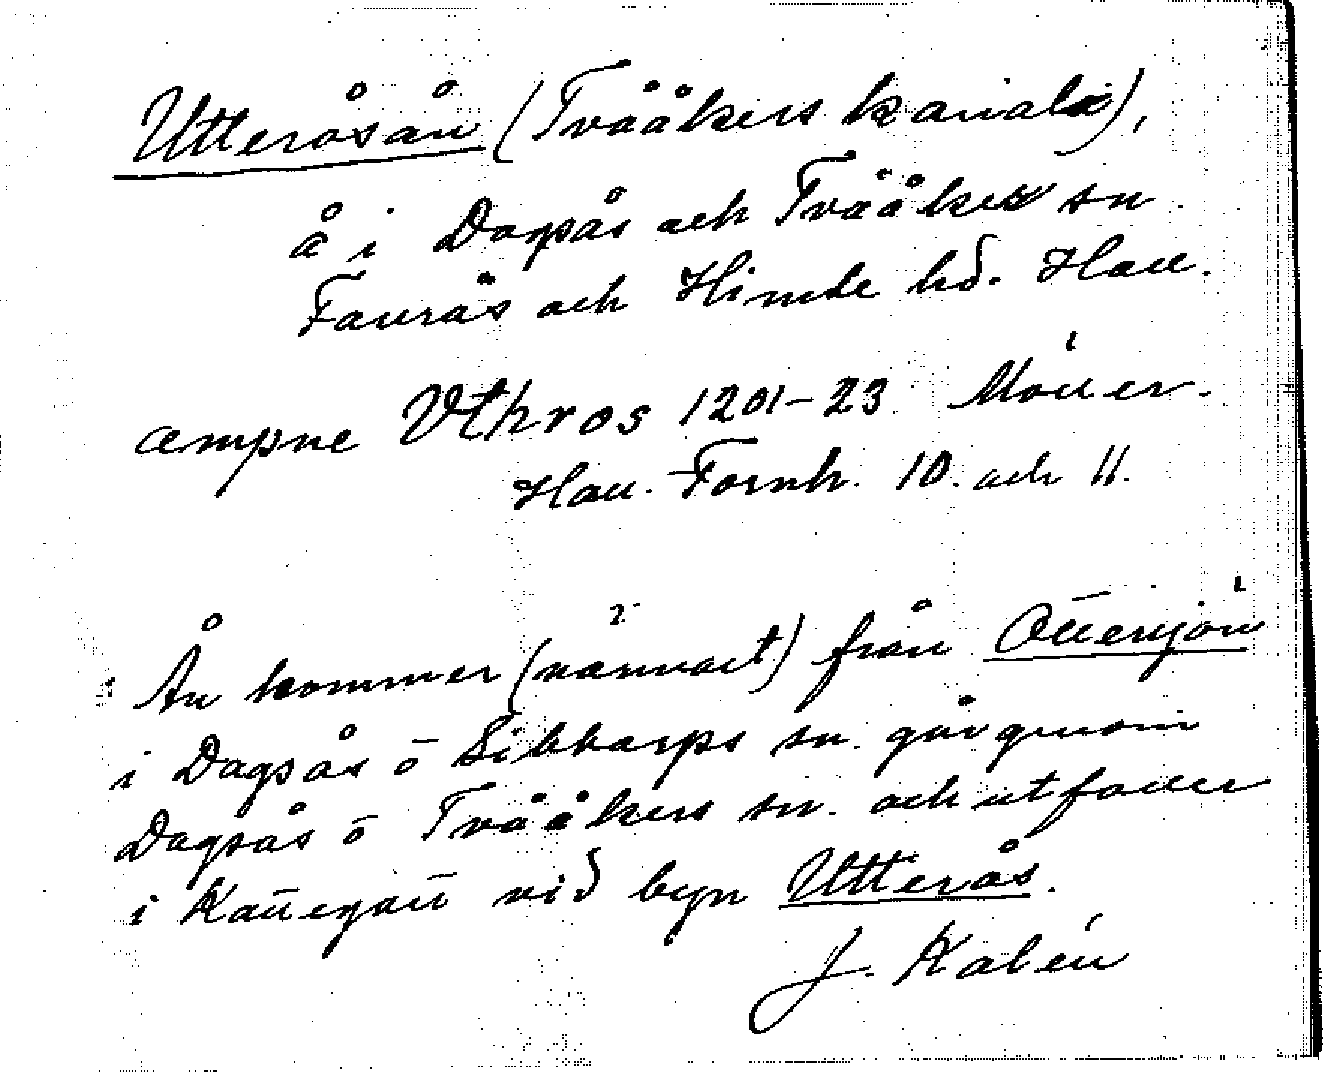 Utteråsån (Tvååkers kanal),
å i Dagsås och Tvååker sn
Faurås och Himle hd. Hall.
ampne Uthros 1201-23 Möller.
Hall. Fornh. 10. och 11.
Ån kommer (närmast) från Ottersjön
i Dagsås o Sibbarps sn. går genom
Dagsås o Tvååkers sn. och utfaller
i Kattegatt vid byn Utterås.
J. Kalén